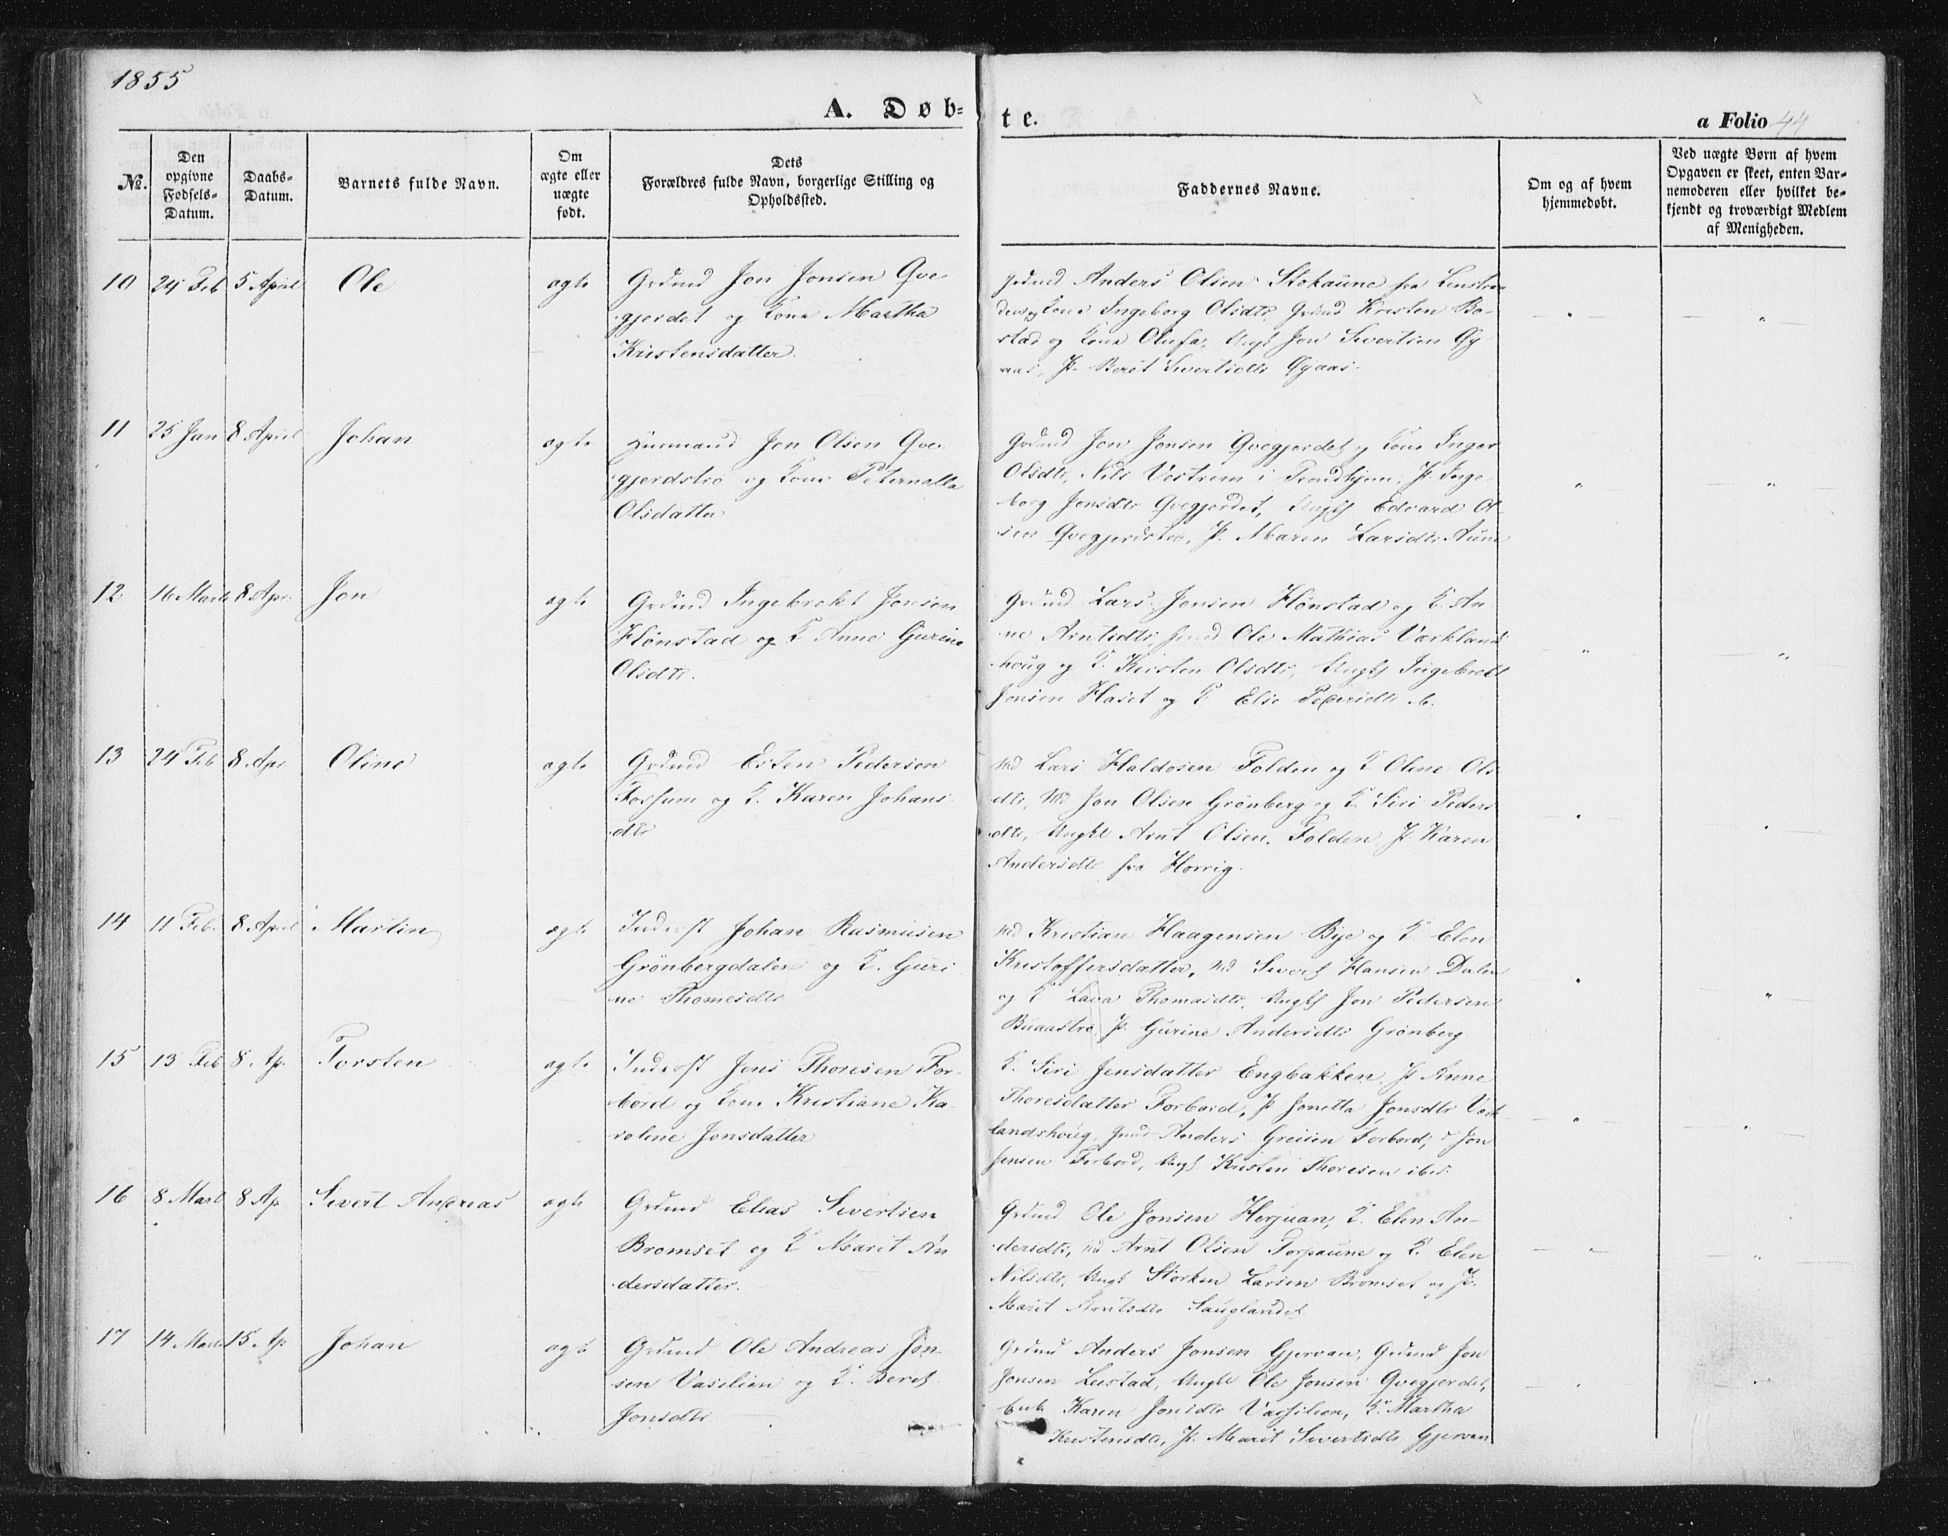 1855
A. Døb=
te.
a Folio 44
No.
Den opgivne Fødsels-Datum.
Daabs-Datum.
Barnets fulde Navn.
Om ægte eller uægte født.
Dets Forældres fulde Navn, borgerlige Stilling og Opholdssted.
Faddernes Navne.
Om og af hvem hjemmedøbt.
Ved uægte Børn af hvem Opgaven er skeet, enten Barnemoderen eller hvilket bekjendt og troværdigt Medlem af Menigheden.
10 24 Feb 5 April Ole ægte
Grdmd Jon Jonsen Qve-
gjerdet og Kone Martha
Kristensdatter.
Grdmd Anders Olsen Stokaune fra
Kone Ingeborg Olsdtr, Grdmd Kristen Bo-
stad og Kone Olufa, Ungk Jon Sivertsen Gy-
aas, P. Berit Sivertsdtr Gyaas.
11 25 Jan 8 April Johan ægte
Husmand Jon Olsen Qve-
gjerdstrø og Kone Peternella
Olsdatter
Grdmd Jon Jonsen Qvegjerdet og Kone Inger
Olsdtr, Nils Vestrem i Trondhjem, P. Inge-
borg Jonsdtr Qvegjerdet, Ungk Edvard Ol-
sen Qvegjerdstrø, P. Maren Larsdtr Aune
12 16 Marts 8 Apr. Jon ægte
Grdmd Ingebrekt Jonsen
Hønstad og K Anne Gurine
Olsdtr.
Grdmd Lars Jonsen Hønstad og K. An-
ne Arntsdtr, Ole Mathias Værklands-
houg og K. Kirsten Olsdtr, Ungk Ingebrekt
Jonsen Haset og P Elise Pedersdtr
13 24 Feb 8 Apr. Oline ægte
Grdmd Esten Pedersen
Fossum og K. Karen Johans-
dtr
Lars Haldosen Folden og K Oline Ols-
dtr, Jon Olsen Grønberg og K. Siri Peders-
dtr, Ungkl Arnt Olsen Folden, P. Karen
Andersdtr fra Horrig.
14 11 Feb. 8 April Martin ægte
Inderst Johan Rasmusen
Grønbergdalen og K. Guri-
ne Thomesdtr
Kristian Haagensen Bye og K. Elen
Kristoffersdatter, Sivert Hansen Dalen
og K Lava Thomasdtr, Ungk Jon Pedersen
Buaastrø, P. Gurine Andersdtr Grønberg
15 13 Feb 8 Ap. Torsten ægte
Inderst Jens Thoresen For-
bord og Kone Kristiane Ka-
roline Jonsdatter
K. Siri Jensdatter Engbakken, P. Anne
Thoresdatter Forbord, P. Jonetta Jonsdtr Værk-
landshoug, Anders Greisen Forbord, Jon
Jensen Forbord, Ungk Kristen Thoresen ibid.
16 8 Marts 8 Ap Sivert Andreas ægte
Grdmd Elias Sivertsen
Bromset og K Marit An-
dersdatter.
Grdmd Ole Jonsen Herjuan, K. Elen An-
dersdtr, Arnt Olsen Torpaune og K. Elen
Nilsdtr, Ungk Storker Larsen Bromset og P.
Marit Arntsdtr Sauglandet
17 14 Marts 15 Ap Johan ægte
Grdmd Ole Andreas Jon-
sen Vaslien og K. Beret
Jonsdtr.
Grdmd Anders Jonsen Gjervan, Grdmd Jon
Jonsen Leistad, Ungkl Ole Jonsen Qvegjerdet,
Karen Jonsdtr Vasslien, K. Martha
Kristensdtr, P. Marit Sivertsdtr Gjervan